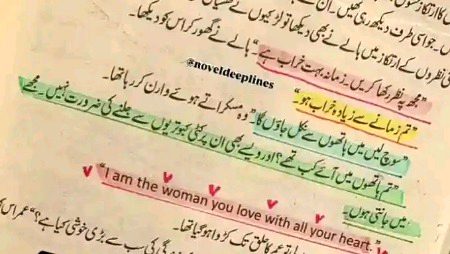 کا ارتکاز
جو اسی طرف دیکھ رہی تھیں۔ ان
نظروں کے ارتکاز میں ہالے نے بھی دیکھا تو لڑکیوں
"مجھ پہ نظر رکھا کریں۔ زمانہ بہت خراب ہے۔" ہالے نے گھور کر اس کو دیکھا۔
@noveldeeplines
"تم زمانے سے زیادہ خراب ہو۔"
"سوچ لیں میں ہاتھوں سے نکل جاؤں گا" وہ مسکراتے ہوئے وارن کر رہا تھا۔
"تم ہاتھوں میں آئے کب تھے؟ اور ویسے بھی ان پر کٹی کبوتریوں سے جلنے کی ضرورت نہیں۔ مجھے
میں جانتی ہوں۔
"I am the woman you love with all your heart."
تو عمر کا حلق تک کڑوا ہو گیا تھا۔
زندگی کی سب سے بڑی خوشی کیا ہے؟" عمر اس